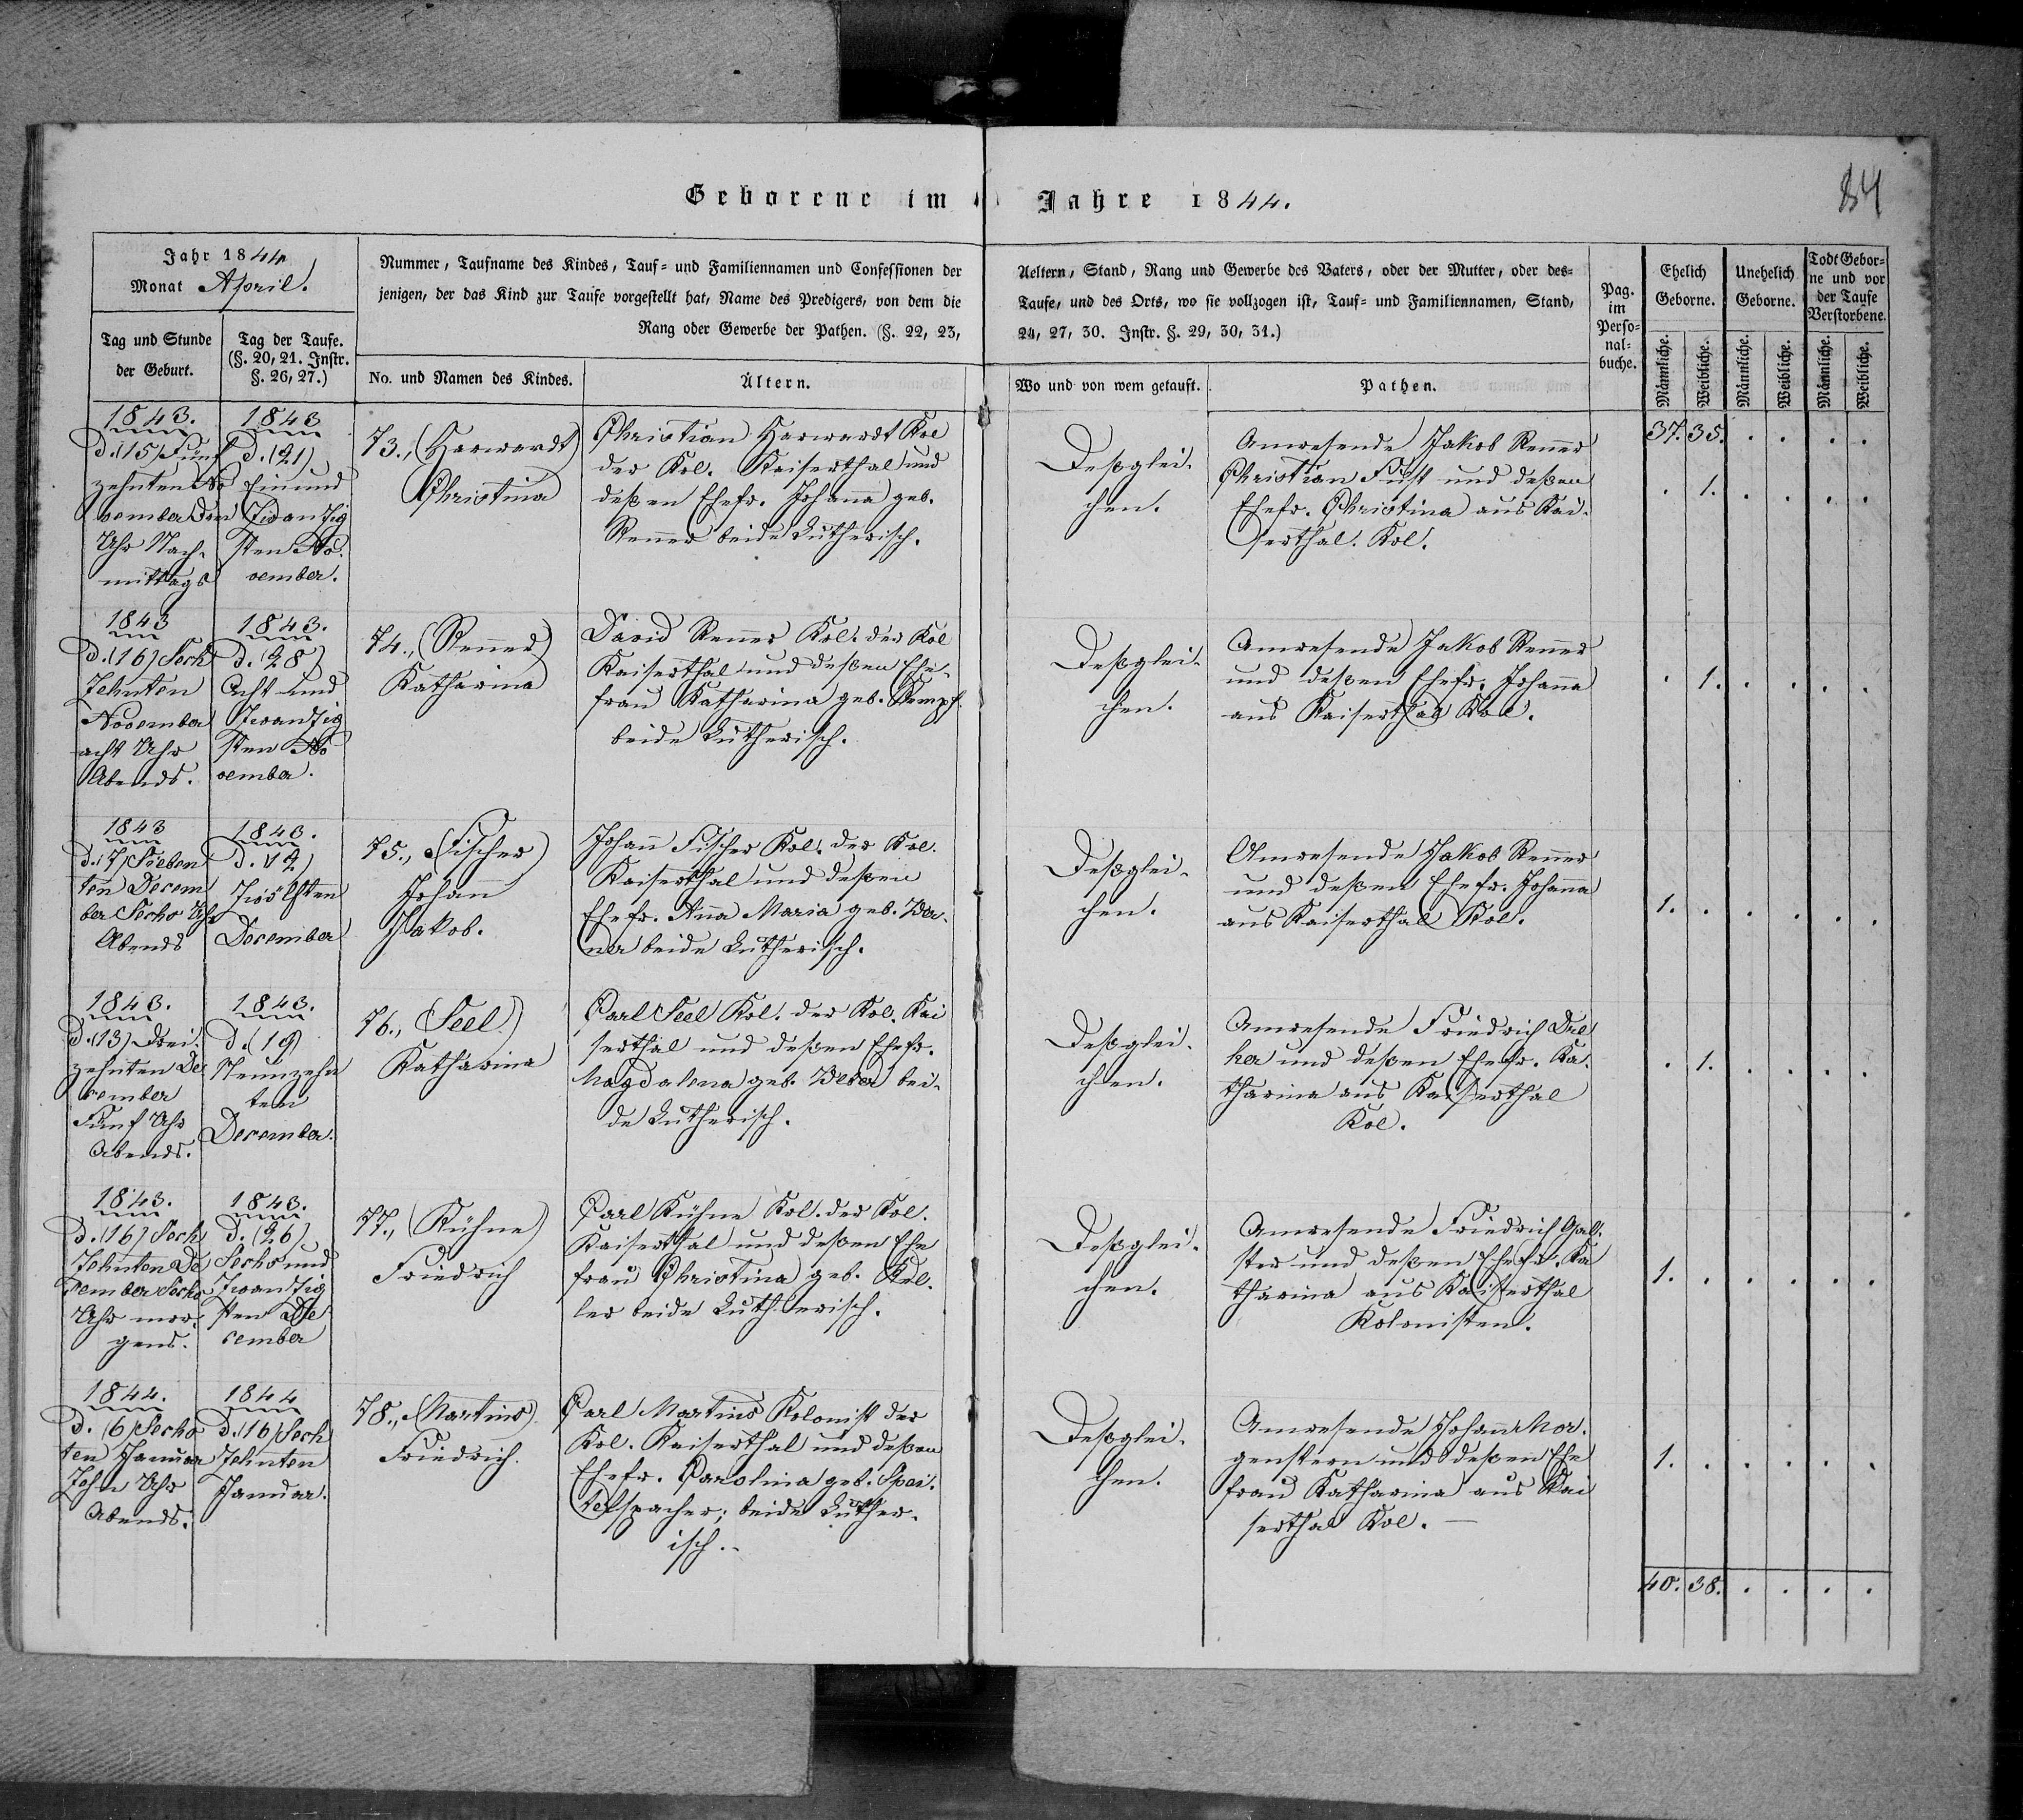 Geborene im Jahre 1844.
84
Jahr 1844
Monat April.
Tag und Stunde
der Geburt.
Tag der Taufe.
(§. 20, 21. Instr.
§. 26, 27.)
Nummer, Taufname des Kindes, Tauf- und Familiennamen und Confessionen der
jenigen, der das Kind zur Taufe vorgestellt hat, Name des Predigers, von dem die
Rang oder Gewerbe der Pathen. (§. 22, 23,
No. und Namen des Kindes.
Ältern.
Aeltern, Stand, Rang und Gewerbe des Vaters, oder der Mutter, oder des-
Taufe, und des Orts, wo sie vollzogen ist, Tauf- und Familiennamen, Stand,
24, 27, 30. Instr. §. 29, 30, 31.)
Wo und von wem getauft.
Pathen.
Pag.
im
Perso-
nal-
buche.
Ehelich
Geborne.
Unehelich
Geborne.
Todt Gebor-
ne und vor
der Taufe
Verstorbene.
Männliche.
Weibliche.
Männliche.
Weibliche.
Männliche.
Weibliche.
1843.
D. (15) Fünf
zehnten No
vember Drei
Uhr Nach-
mittags
1843
D. (21)
Ein und
Zwanzig
sten No-
vember.
73., (Harwardt)
Christina
Christian Harwardt Kol
der Kol. Kaiserthal und
deßen Ehefr. Johanna geb.
Renner beide Lutherisch.
Deßglei-
chen.
Anwesende Jakob Renner
Christian Fust und deßen
Ehefr. Christina aus Kai-
serthal. Kol.
37. 35. . . . .
. 1. . . . .
1843
D. (16) Sech
zehnten
November
acht Uhr
Abends.
1843.
D. (28)
Acht und
Zwanzig
sten No
vember.
74., (Renner)
Katharina
David Renner Kol. der Kol
Kaiserthal und deßen Ehe-
frau Katharina geb. Kempf
beide Lutherisch.
Deßglei-
chen.
Anwesende Jakob Renner
und deßen Ehefr. Johanna
aus Kaiserthal Kol.
. 1. . . . .
1843
D. (7) Sieben
ten Decem
ber Sechs Uhr
Abends
1843.
D. (12)
Zwölften
December
75., (Fischer)
Johann
Jakob.
Johann Fischer Kol. der Kol.
Kaiserthal und deßen
Ehefr. Anna Maria geb. Wer-
ner beide Lutherisch.
Deßglei-
chen.
Anwesende Jakob Renner
und deßen Ehefr. Johanna
aus Kaiserthal Kol.
1. . . . . .
1843.
D. (13) Drei-
zehnten De
cember
Fünf Uhr
Abends.
1843.
D. (19)
Neunzehn
ten
December.
76., (Seel)
Katharina
Carl Seel Kol. der Kol. Kai
serthal und deßen Ehefr.
Magdalena geb. Weber bei-
de Lutherisch.
Deßglei-
chen.
Anwesende Friedrich
und deßen Ehefr. Ka-
tharina aus Kaiserthal
Kol.
. 1. . . . .
1843.
D. (16) Sech
zehnten De
cember Sechs
Uhr mor-
gens.
1843.
D. (26)
Sechs und
Zwanzig
sten De
cember
77., (Kühne)
Friedrich
Carl Kühne Kol. der Kol.
Kaiserthal und deßen Ehe
frau Christina geb. Kel-
ler beide Lutherisch.
Deßglei-
chen.
Anwesende Friedrich Gal-
ster und deßen Ehefr. Ka
tharina aus Kaiserthal
Kolonisten.
1. . . . . .
1844.
D. (6) Sechs
ten Januar
Zehn Uhr
Abends.
1844
D. (16) Sech
zehnten
Januar.
78., (Martins)
Friedrich.
Carl Martins Kolonist der
Kol. Kaiserthal und deßen
Ehefr. Carolina geb. Spei-
telspacher; beide Luther-
isch.
Deßglei-
chen.
Anwesende Johann Mor-
genstern und deßen Ehe
frau Katharina aus Kai
serthal Kol.
1. . . . . .
40. 38. . . . .